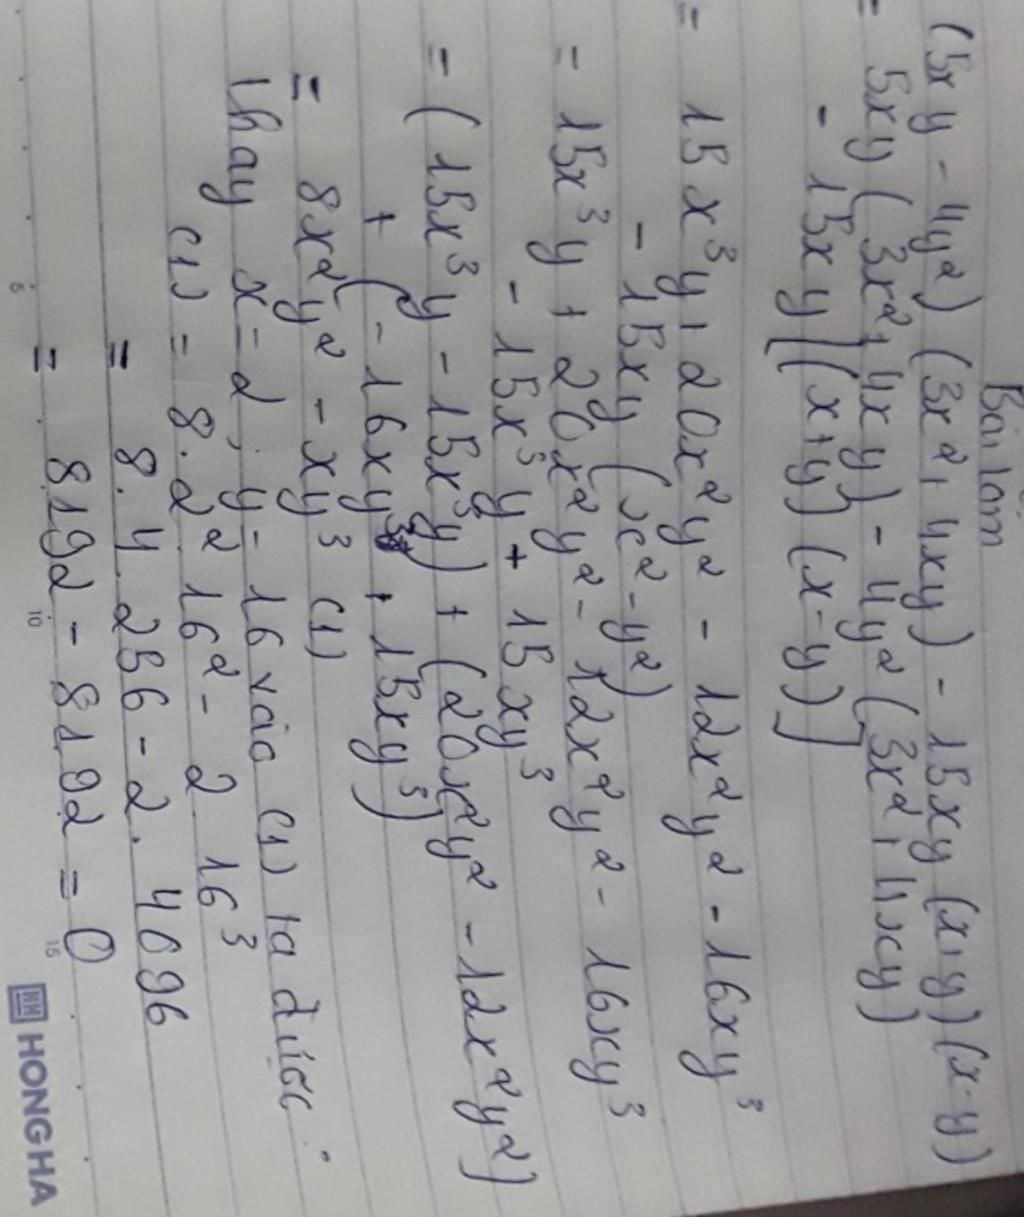 Bài làm
(5xy - 4y²) (3x² + 4xy) - 15xy (x+y) (x-y)
= 5xy (3x² + 4xy) - 4y² (3x² + 4xy)
- 15xy [(x+y) (x-y)]
= 15x³y + 20x²y² - 12x²y² - 16xy³
- 15xy (x² - y²)
= 15x³y + 20x²y² - 12x²y² - 16xy³
- 15x³y + 15xy³
= (15x³y - 15x³y) + (20x²y² - 12x²y²)
+ (-16xy³ + 15xy³)
= 8x²y² - xy³ (1)
Thay x = 2; y = 16 vào (1) ta được:
(1) = 8.2².16² - 2.16³
= 8.4.256 - 2.4096
= 8192 - 8192 = 0
5 10 15
HONG HA